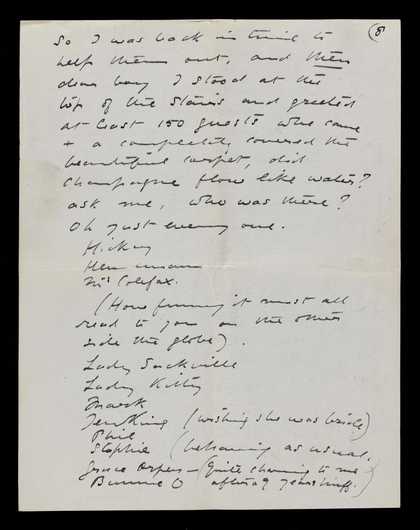 (8)
So I was back in time to
help them out, and then
dear boy I stood at the
top of the stairs and greeted
at least 150 guests who came
+ a completely covered the
beautiful carpet, did
Champagne flow like water?
ask me, who was there?
Oh just every one.
Hickey
Mrs Colefax.
(How funny it must all
read to you on the other
side the globe).
Lady Sackville
Lady Kitty
(wishing she was bride)
Phil
Stephie (behaving as usual.
(Quite charming to me
after 9 years huff.)